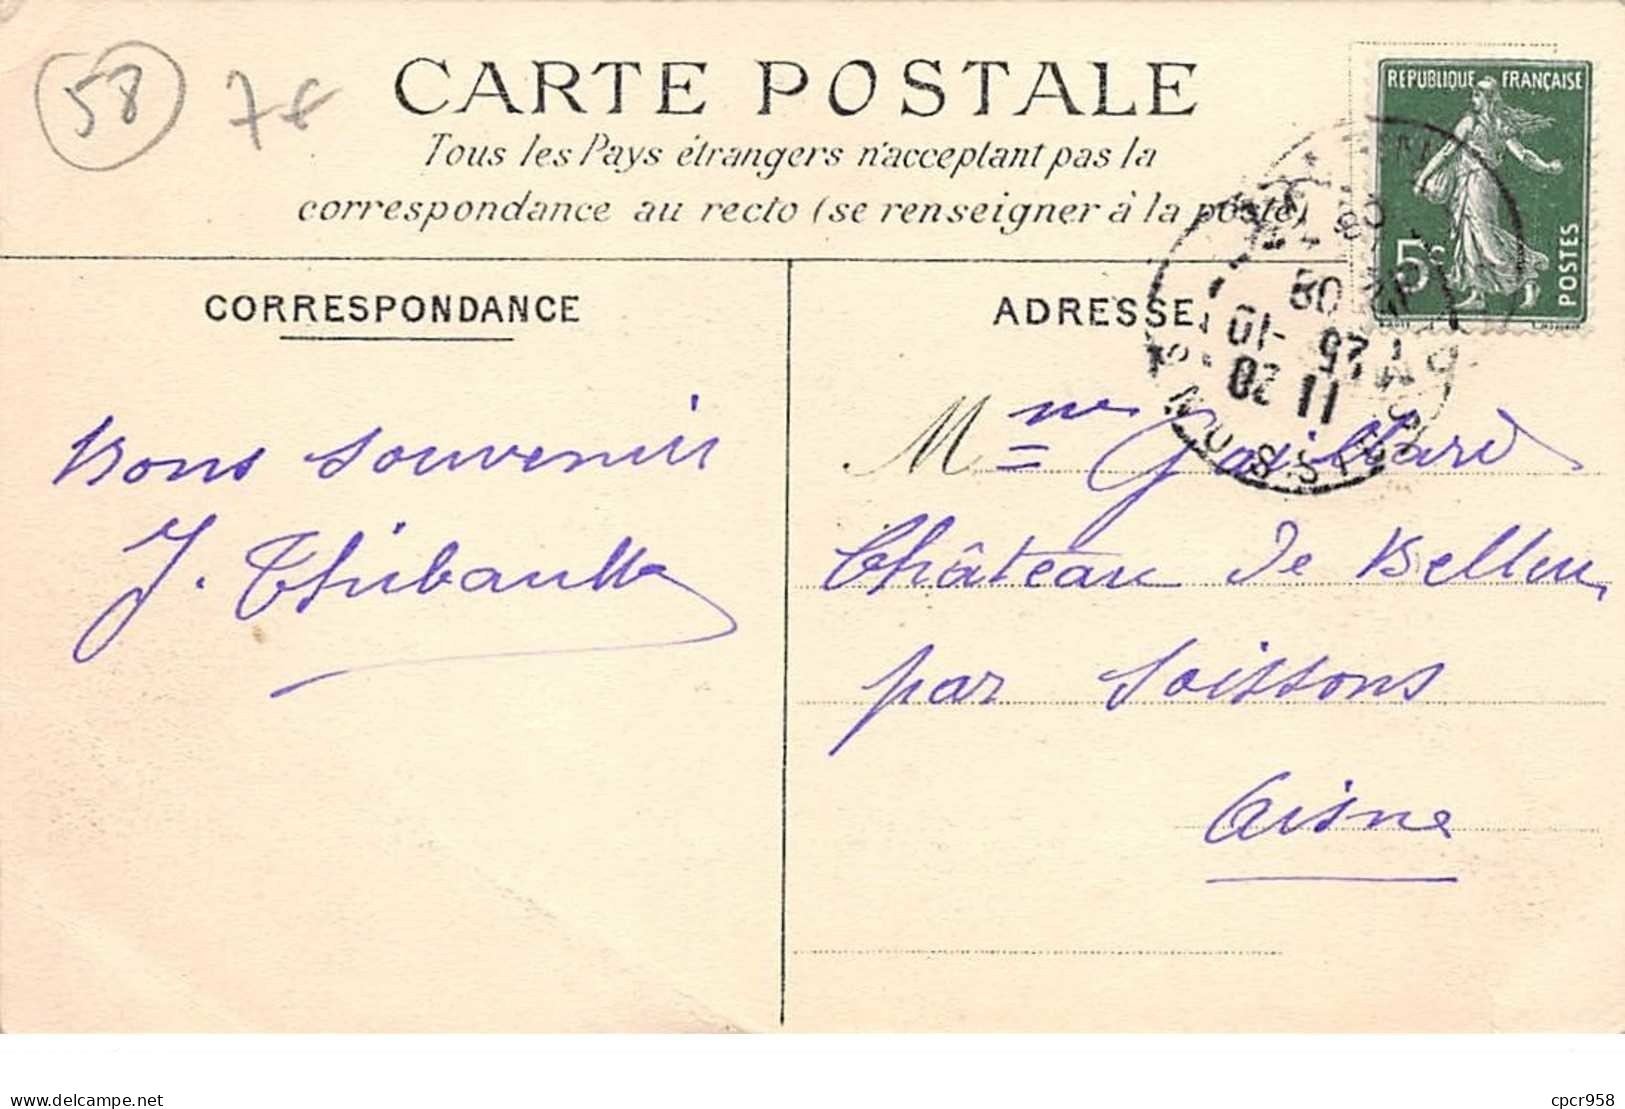 58
7€
CARTE POSTALE
Tous les Pays étrangers n'acceptant pas la
correspondance au recto (se renseigner à la poste)
REPUBLIQUE FRANÇAISE
5c
POSTES
CORRESPONDANCE
ADRESSE
Bons souvenirs
J. Thibault
Mme Gaillard
Château de Belleu
par Soissons
Aisne
11 20
25 -10
09
cpcr958